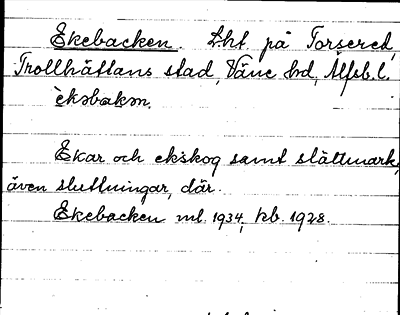 Ekebacken. Lht på Torsered,
Trollhättans stad, Väne hd, Älfsb. l.
èkəbakən.
Ekar och ekskog samt slättmark,
även sluttningar, där.
Ekebacken ml. 1934, kb. 1928.